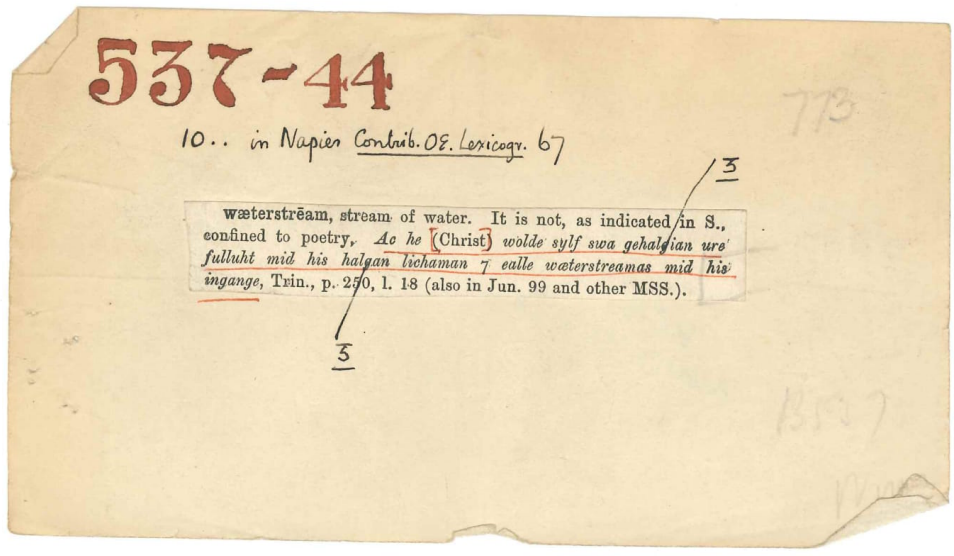 537-44
773
10.. in Napier Contrib. OE. Lexicogr. 67
ʒ
wæterstrēam, stream of water. It is not, as indicated in S.,
confined to poetry, Ac he [(Christ)] wolde sylf swa gehalgian ure
fulluht mid his halgan lichaman ⁊ ealle wæterstreamas mid his
ingange, Trin., p. 250, l. 18 (also in Jun. 99 and other MSS.).
ʒ